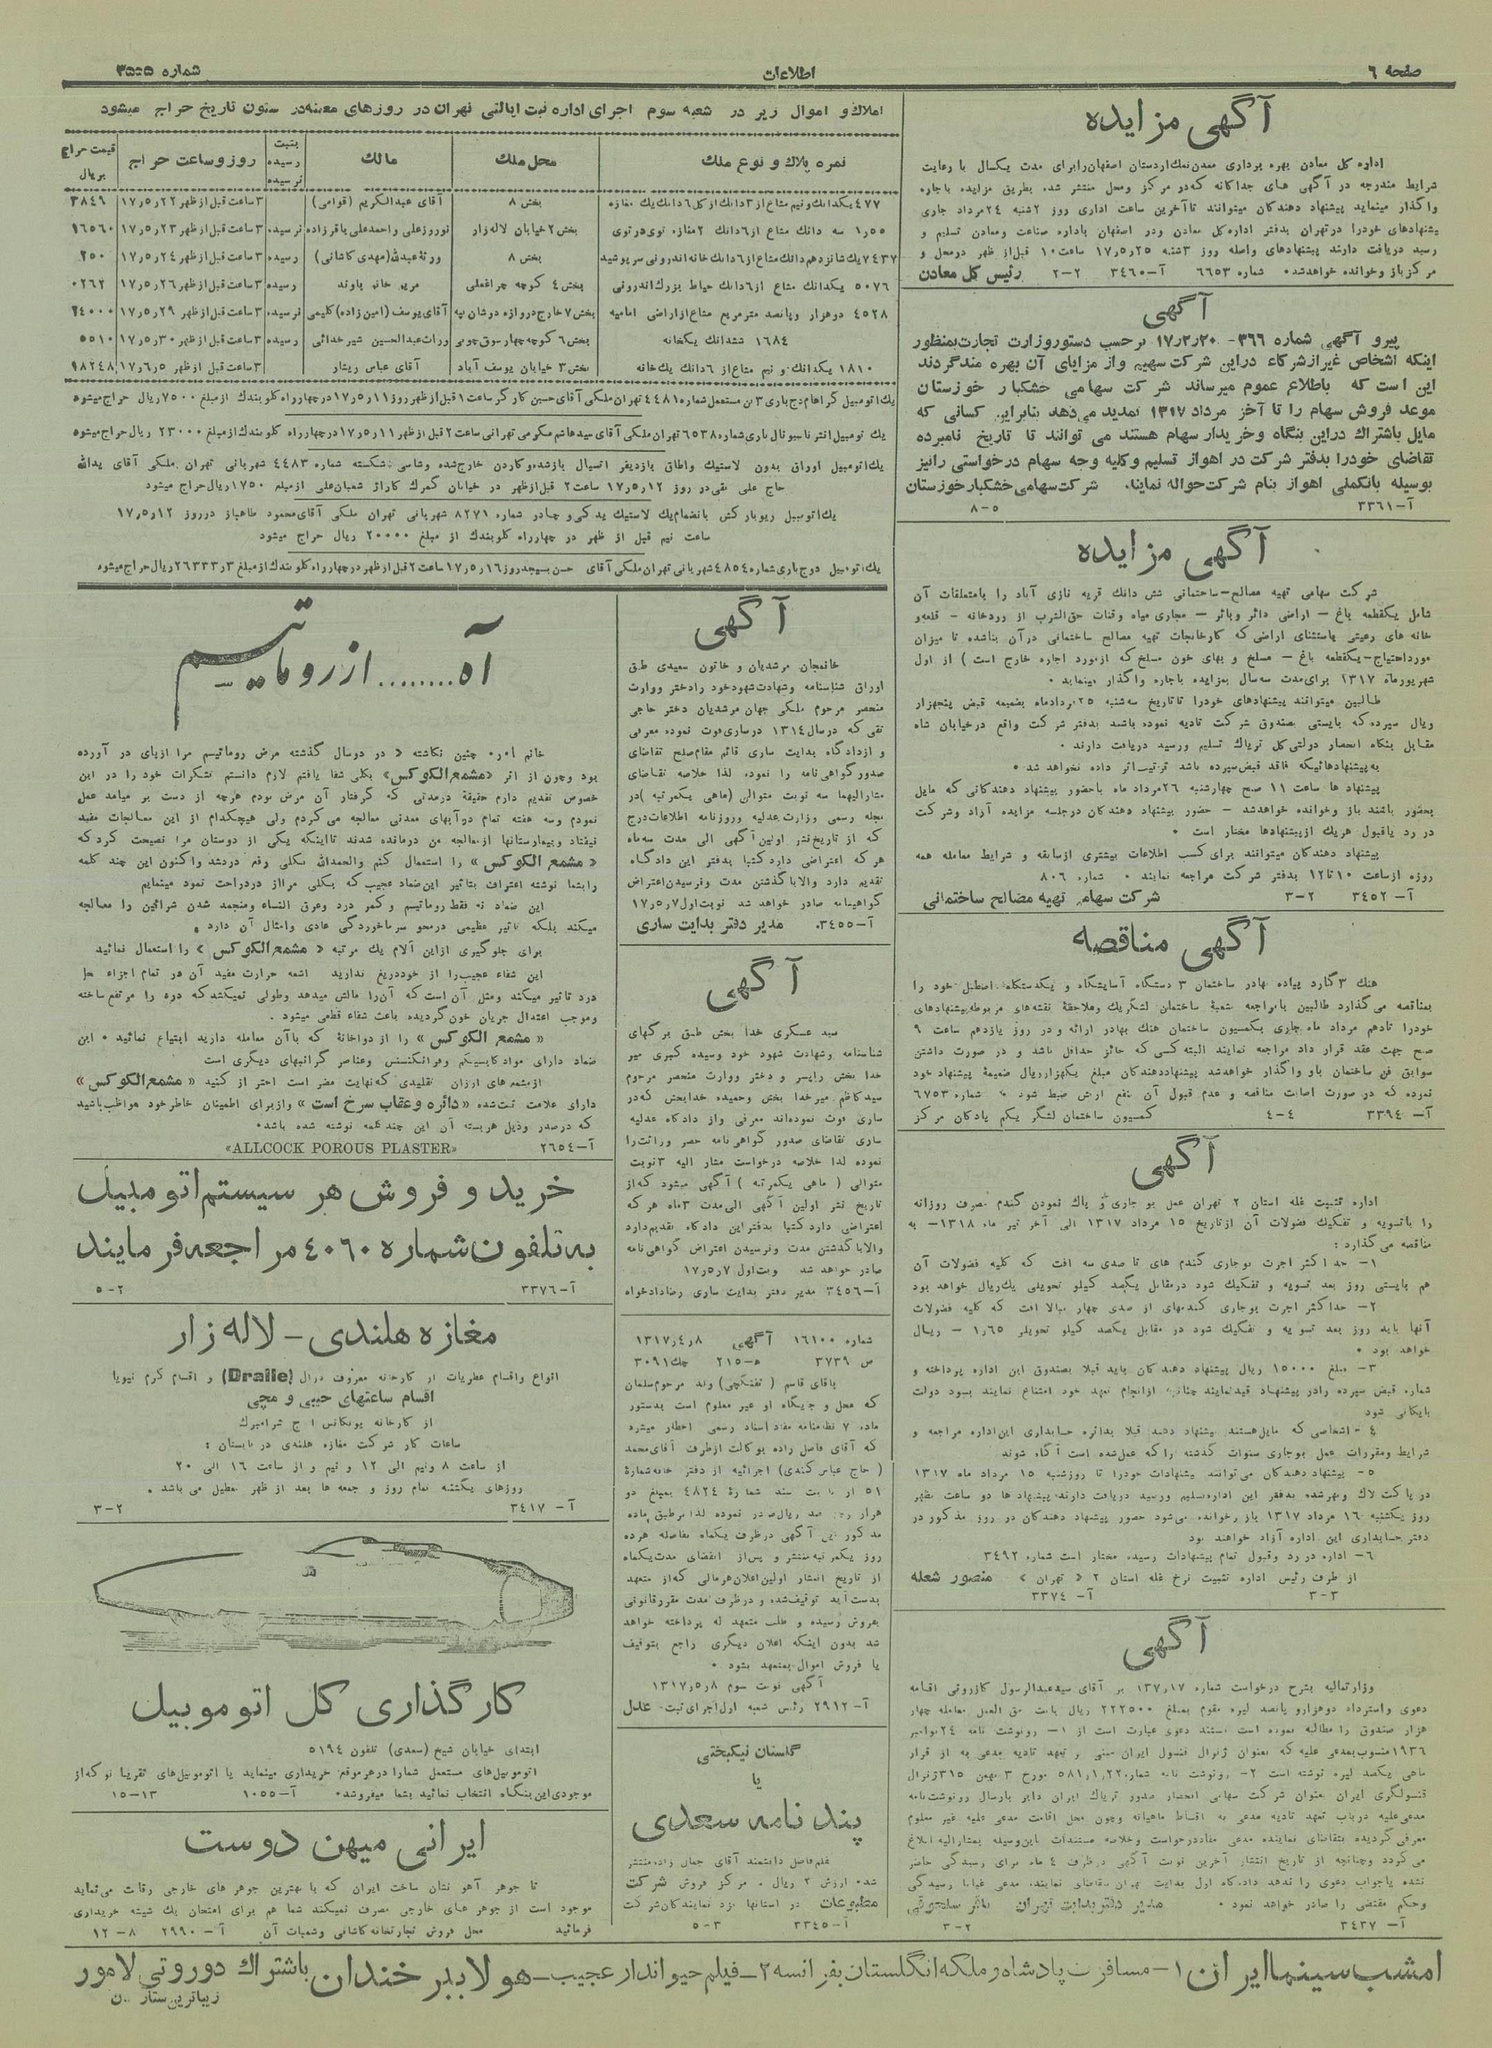 صفحه ٦
اطلاعات
شماره ۳۵۵۵
آگهی مزایده
اداره کل معادن بهره برداری معدن نمك اردستان اصفهان را برای مدت یکسال با رعایت
شرایط مندرجه در آگهی های جداگانه که در مرکز ومحل منتشر شده بطریق مزایده باجاره
واگذار مینماید پیشنهاد دهندگان میتوانند تا آخرین ساعت اداری روز ۲شنبه ۲٤مرداد جاری
پیشنهادهای خودرا درتهران بدفتر اداره کل معادن ودر اصفهان باداره صناعت ومعادن تسلیم و
رسید دریافت دارند پیشنهادهای واصله روز ۳شنبه ۱۷٫۵٫۲۵ ساعت ۱۰ قبل از ظهر درمحل و
مرکز باز وخوانده خواهدشد٠ شماره ٦٦٥۳ آ-۳٤٦۰ ۲-۲ رئیس کل معادن
آگهی
پیرو آگهی شماره ۳۶۶- ۱۷٫۲٫۲۰ برحسب دستور وزارت تجارت بمنظور
اینکه اشخاص غیر از شرکاء در این شرکت سهیم واز مزایای آن بهره مند گردند
این است که باطلاع عموم میرساند شرکت سهامی خشکبار خوزستان
موعد فروش سهام را تا آخر مرداد ۱۳۱۷ تمدید می‌دهد بنابراین کسانی که
مایل باشتراك دراین بنگاه وخریدار سهام هستند می توانند تا تاریخ نامبرده
تقاضای خودرا بدفتر شرکت در اهواز تسلیم وکلیه وجه سهام درخواستی رانیز
بوسیله بانک ملی اهواز بنام شرکت حواله نمایند. شرکت سهامی خشکبار خوزستان
آ-۳۳٦۱ ۵-۸
آگهی مزایده
شرکت سهامی تهیه مصالح-ساختمانی شش دانك قریه نازی آباد را بامتعلقات آن
شامل یکقطعه باغ - اراضی دائر وبائر - مجاری میاه وقنات حق‌الشرب از رودخانه - قلعه‌و
خانه های رعیتی باستثنای اراضی که کارخانجات تهیه مصالح ساختمانی درآن بناشده تا میزان
مورداحتیاج-یکقطعه باغ - مسلخ و بهای خون مسلخ که ازمورد اجاره خارج است) از اول
شهریورماه ۱۳۱۷ برای مدت سه‌سال بمزایده باجاره واگذار مینماید ٠
طالبین میتوانند پیشنهادهای خودرا تاتاریخ سه‌شنبه ۲۵مردادماه بضمیمه قبض پنجهزار
ریال سپرده که بایستی بصندوق شرکت تادیه نموده باشند بدفتر شرکت واقع درخیابان شاه
مقابل بنگاه انحصار دولتی کل تریاك تسلیم ورسید دریافت دارند ٠
به پیشنهادهائیکه فاقد قبض سپرده باشد ترتیب اثر داده نخواهد شد ٠
پیشنهاد ها ساعت ۱۱ صبح چهارشنبه ۲٦مرداد ماه باحضور پیشنهاد دهندگانی که مایل
بحضور باشند باز وخوانده خواهدشد - حضور پیشنهاد دهندگان درجلسه مزایده آزاد وشرکت
در رد یاقبول هریك ازپیشنهادها مختار است ٠
پیشنهاد دهندگان میتوانند برای کسب اطلاعات بیشتری ازسابقه و شرایط معامله همه
روزه ازساعت ۱۰تا۱۲ بدفتر شرکت مراجعه نمایند ٠ شماره ۸۰٦
آ- ۳٤٥۲ ۳-۲ شرکت سهامی تهیه مصالح ساختمانی
آگهی مناقصه
هنك ۳گارد پیاده بهادر ساختمان ۳ دستگاه آسایشگاه و یکدستگاه اصطبل خود را
بمناقصه می‌گذارد طالبین بامراجعه بشعبهٔ ساختمان لشگریك وملاحظهٔ نقشه‌های مربوطه پیشنهادهای
خودرا تادهم مرداد ماه جاری بکمسیون ساختمان هنك بهادر ارائه ودر روز یازدهم ساعت ۹
صبح جهت عقد قرار داد مراجعه نمایند البته کسی که حائز حداقل باشد و در صورت داشتن
سوابق فن ساختمان باو واگذار خواهدشد پیشنهاددهندگان مبلغ یکهزارریال ضمیمهٔ پیشنهاد خود
نموده که در صورت اصابت مناقصه و عدم قبول آن بنفع ارتش ضبط شود ٠ شماره ٦۷٥۳
آ- ۳۳۹٤ ٤-٤ کمسیون ساختمان لشگر یکم پادگان مرکز
آگهی
اداره تثبیت غله استان ۲ تهران عمل بوجاری و پاك نمودن گندم مصرف روزانه
را باتسویه و تفکیك فضولات آن ازتاریخ ۱۵ مرداد ۱۳۱۷ الی آخر تیر ماه ۱۳۱۸- به
مناقصه می گذارد :
۱- حد اکثر اجرت بوجاری گندم های تا صدی سه افت که کلیه فضولات آن
هم بایستی روز بعد تسویه و تفکیك شود درمقابل یکصد کیلو تحویلی یك‌ریال خواهد بود
۲- حداکثر اجرت بوجاری گندمهای از صدی چهار ببالا افت که کلیه فضولات
آنها باید روز بعد تسویه و تفکیك شود در مقابل یکصد کیلو تحویلی ۱٫٦٥ - ریال
خواهد بود ٠
۳- مبلغ ۱۵۰۰۰ ریال پیشنهاد دهندگان باید قبلا بصندوق این اداره پرداخته و
شماره قبض سپرده رادر پیشنهاد قیدنمایند چنانچه ازانجام تعهد خود امتناع نمایند بسود دولت
بایگانی شود
٤- اشخاصی که مایل هستند پیشنهاد دهند قبلا بدائره حسابداری این اداره مراجعه و
شرایط ومقررات عمل بوجاری سنوات گذشته راکه عمل‌شده است آگاه شوند
۵- پیشنهاد دهندگان می‌توانند پیشنهادات خودرا تا روزشنبه ۱۵ مرداد ماه ۱۳۱۷
در پاکت لاك ومهرشده بدفتر این اداره‌تسلیم ورسید دریافت دارند پیشنهاد ها دو ساعت بظهر
روز یکشنبه ۱٦ مرداد ۱۳۱۷ باز وخوانده می‌شود حضور پیشنهاد دهندگان در روز مذکور در
دفتر حسابداری این اداره آزاد خواهند بود
٦- اداره در رد وقبول تمام پیشنهادات رسیده مختار است شماره ۳٤۹۲
از طرف رئیس اداره تثبیت نرخ غله استان ۲ « تهران » منصور شعله
آ- ۳۳۷٤ ۳-۳
آگهی
وزارتمالیه بشرح درخواست شماره ۱۳۷٫۱۷ بر آقای سیدعبدالرسول کازرونی اقامه
دعوی واسترداد دوهزارو پانصد لیره مقوم بمبلغ ۲۲۲۵۰۰ ریال بابت حق العمل معامله چهار
هزار صندوق را مطالبه نموده است مستند دعوی عبارت است از ۱- رونوشت نامه ۲٤نوامبر
۱۹۳٦منسوب‌بمدعی علیه که بعنوان ژنرال قنسول ایران مبنی بر تعهد تادیه مدعی به از قرار
ماهی یکصد لیره نوشته است ۲- رونوشت نامه شماره ۵۸۱٫۱٫۲۲ مورخ ۳بهمن ۳۱۵ژنرال
قنسولگری ایران بعنوان شرکت سهامی انحصار صدور تریاك ایران دایر بارسال رونوشت‌نامه
مدعی‌علیه درباب تعهد تادیه مدعی به اقساط ماهیانه وچون محل اقامت مدعی علیه غیر معلوم
معرفی گردیده بتقاضای نماینده مدعی مفاددرخواست وخلاصه مستندات باین‌وسیله بمشارالیه ابلاغ
می گردد وچنانچه از تاریخ انتشار آخرین نوبت آگهی درظرف ٤ ماه برای رسیدگی حاضر
نشده یاجواب دعوی را ندهد دادگاه اول بدایت تهران بتقاضای نماینده مدعی غیابا رسیدگی
وحکم مقتضی را صادر خواهد نمود ٠ مدیر دفتر بدایت تهران
آ- ۳٤۳۷ ۳-۲
املاك و اموال زیر در شعبه سوم اجرای اداره ثبت ایالتی تهران در روزهای معینه‌در ستون تاریخ حراج میشود
نمره پلاك و نوع ملك | محل ملك | مالك | بثبت رسیده نرسیده | روز وساعت حراج | قیمت حراج بریال
٤۷۷ یکدانك ونیم مشاع از ۳دانك از کل ٦دانك یك مغازه | بخش ۸ | آقای عبدالکریم (قوامی) | ۳ساعت قبل از ظهر ۱۷٫۵٫۲۲ | ۳۸٤۹
۱٫۵۵ سه دانك مشاع از ٦دانك ۲مغازه توی درتوی | بخش ۲ خیابان لاله‌زار | نوروزعلی واحمدعلی باقرزاده | نرسیده | ۳ساعت قبل ازظهر ۱۷٫۵٫۲۳ | ۱٦۵٦۰
۷٤۳۷یك شانزدهم‌دانك مشاع از٦دانك خانه اندرونی سرپوشیده | بخش ۸ | ورثهٔ عبدالله(مهدی کاشانی) | رسیده | ۳ساعت قبل ازظهر ۱۷٫۵٫۲٤ | ۲۵۰
۵۰۷٦ یکدانك مشاع از٦دانك حیاط بزرك اندرونی | بخش ٤ کوچه چراغعلی | مریم خانم پاوند | رسیده | ۳ساعت قبل ازظهر ۱۷٫۵٫۲٦ | ۰۲٦۲
٤۵۲۸ دوهزار وپانصد مترمربع مشاع ازاراضی امامیه | بخش ۷ خارج دروازه درشان تپه | آقای یوسف (امین زاده) کلیمی | نرسیده | ۳ساعت قبل ازظهر ۱۷٫۵٫۲۹ | ۲٤۰۰۰
۱٦۸٤ ششدانك یکخانه | بخش ٦ کوچه چهار سوق چوبی | وراث عبدالحسین شیرخدائی | رسیده | ۳ساعت قبل ازظهر ۱۷٫۵٫۳۰ | ۵۵۱۰
۱۸۱۰ یکدانك و نیم مشاع از ٦دانك یك خانه | بخش ۳ خیابان یوسف آباد | آقای عباس ریشار | ۳ساعت قبل از ظهر ۱۷٫٦٫۵ | ۹۸۲٤۸
یك اتومبیل گراهام دج باری ۳ تن مستعمل شماره ٤٤۸۱ تهران ملکی آقای حسین کارگر ساعت ۱ قبل ازظهر روز ۱۷٫۵٫۱۱ درچهارراه کلوبندك از مبلغ ۷۵۰۰ریال حراج میشود
یك تومبیل انترناسیونال باری شماره ٦۵۳۸ تهران ملکی آقای سید هاشم مکرمی تهرانی ساعت ۲ قبل ازظهر ۱۷٫۵٫۱۱ درچهارراه کلوبندك ازمبلغ ۲۳۰۰۰ ریال حراج میشود
یك اتومبیل اوراق بدون لاستیك واطاق بازدیفر اتسیال بازشده وکاردن خارج‌شده وشاسی شکسته شماره ٤٤۸۳ شهربانی تهران ملکی آقای یدالله
حاج علی نقی‌دو روز ۱۷٫۵٫۱۲ ساعت ۲ قبل‌ازظهر در خیابان گمرك گاراژ شعبان‌علی ازمبلغ ۱۷۵۰ریال حراج میشود
یك اتومبیل ریوبارکش بانضمام یك لاستیك یدکی و چادر شماره ۸۲۷۱ شهربانی تهران ملکی آقای محمود طاهباز درروز ۱۷٫۵٫۱۲
ساعت نیم قبل از ظهر در چهارراه کلوبندك از مبلغ ۲۰۰۰۰ ریال حراج میشود
یك اتومبیل دوج باری شماره ٤۸۵٤ شهربانی تهران ملکی آقای حسن بسیجد روز ۱۷٫۵٫۱٦ ساعت ۲ قبل ازظهر درچهارراه کلوبندك ازمبلغ ۲٦۳۳۳٫۳ ریال حراج میشود
آگهی
خانمجان مرشدیان و خاتون سعیدی طبق
اوراق شناسنامه وشهادت‌شهودخود رادختر ووارث
منحصر مرحوم ملکی جهان مرشدیان دختر حاجی
تقی که درسال ۱۳۱٤ درساری‌فوت نموده معرفی
و ازدادگاه بدایت ساری قائم مقام‌صلح تقاضای
صدورگواهی‌نامه را نموده لذا خلاصه تقاضای
مشارالیهما سه نوبت متوالی (ماهی یکمرتبه )در
مجله رسمی وزارت عدلیه وروزنامه اطلاعات‌درج
که از تاریخ‌نشر اولین آگهی الی مدت سه‌ماه
هرکه اعتراضی دارد کتبا بدفتر این دادگاه
تقدیم دارد والا باگذشتن مدت ونرسیدن اعتراض
گواهینامه صادر خواهد شد نوبت‌اول ۱۷٫۵٫۷
آ-۳٤۵۵ مدیر دفتر بدایت ساری
آگهی
سید عسکری خدا بخش طبق برگهای
شناسنامه وشهادت شهود خود وسیده کبری میر
خدا بخش راپسر و دختر ووارث منحصر مرحوم
سیدکاظم میرخدا بخش وحمیده خدابخش که‌در
ساری فوت نموده‌اند معرفی واز دادگاه عدلیه
ساری تقاضای صدور گواهی‌نامه حصر وراثت‌را
نموده لذا خلاصه درخواست مشار الیه ۳نوبت
متوالی ( ماهی یکمرتبه ) آگهی میشود که‌از
تاریخ نشر اولین آگهی الی‌مدت ۳ماه هرکه
اعتراضی دارد کتبا بدفتراین دادگاه تقدیم‌دارد
والاباگذشتن مدت ونرسیدن اعتراض گواهی‌نامه
صادر خواهد شد نوبت‌اول ۱۷٫۵٫۷
آ-۳٤۵٦ مدیر دفتر بدایت ساری رضادادخواه
شماره ۱٦۱۰۰ آگهی ۱۳۱۷٫٤٫۸
ص ۳۷۳۹ ه-۲۱۵ چك ۳۰۹۱
بآقای قاسم ( تفنگچی) ولد مرحوم‌سلمان
که محل و جایگاه او غیر معلوم است بدستور
ماده ۷ نظامنامه مفاد اسناد رسمی اخطار میشود
که آقای فاضل زاده بوکالت ازطرف آقای‌محمد
( حاج عباس کندی) اجرائیه از دفتر خانه‌شمارهٔ
مذکور این آگهی درظرف یکماه بفاصله هرده
روز یکمرتبه منتشر و پس‌از انقضای مدت‌یکماه
از تاریخ انتشار اولین‌اعلان هرمالی که‌از متعهد
بدست‌آید توقیف‌شده و درظرف مدت مقررقانونی
بفروش رسیده و طلب متعهد له پرداخته خواهد
شد بدون اینکه اعلان دیگری راجع بتوقیف
یا فروش اموال متعهد بشود ٠
آگهی نوبت سوم ۱۳۱۷٫۵٫۸
آ- ۲۹۱۲ رئیس شعبه اول اجرای ثبت- عدل
گلستان نیکبختی
یا
پند نامه سعدی
بقلم فاضل دانشمند آقای جمال زاده‌منتشر
شد٠ ارزش ۲ ریال ٠ مرکز فروش شرکت
مطبوعات در استانها نزد نمایندگان شرکت
آ-۳۳٤۵ ۵-۳
آه........ از روماتیسم
خانم ا٠ر٠ چنین نگاشته « در دوسال گذشته مرض روماتیسم مرا ازپای در آورده
بود وچون از اثر «مشمع الکوکس» بکلی شفا یافتم لازم دانستم تشکرات خود را در این
خصوص تقدیم دارم حقیقة درمدتی که گرفتار آن مرض بودم هرچه از دست بر میامد عمل
نمودم وسه هفته تمام درآبهای معدنی معالجه می‌کردم ولی هیچکدام از این معالجات مفید
نیفتاد وبیمارستانها ازمعالجه من درمانده شدند تااینکه یکی از دوستان مرا نصیحت کرد که
« مشمع الکوکس » را استعمال کنم والحمدالله بکلی رفع دردشد واکنون این چند کلمه
رابشما نوشته اعتراف بتاثیر این‌ضماد عجیب که بکلی مرااز درد راحت نمود مینمایم
این ضماد نه فقط روماتیسم و کمر درد وعرق النساء ومنجمد شدن شرائین را معالجه
میکند بلکه تاثیر عظیمی درمحو سرماخوردگی عادی وامثال آن دارد ٠
برای جلوگیری ازاین آلام یك مرتبه « مشمع الکوکس » را استعمال نمائید
این شفاء عجیب‌را از خوددریغ ندارید اشعه حرارت مفید آن در تمام اجزاء محل
درد تاثیر میکند ومثل آن است که آن‌را مالش میدهد وطولی نمیکشدکه درد را مرتفع ساخته
وموجب اعتدال جریان خون گردیده باعث شفاء قطعی میشود ٠
« مشمع الکوکس » را از دواخانهٔ که باآن معامله دارید ابتیاع نمائید ٠ این
ضماد دارای موادکابسیکم وفرانکنسنس وعناصر گرانبهای دیگری است
ازمشمع‌های ارزان تقلیدی که‌نهایت مضر است احتراز کنید « مشمع الکوکس»
دارای علامت ثبت‌شده « دائره وعقاب سرخ است » وازبرای اطمینان خاطر خود مواظب‌باشید
که درصدر وذیل هربسته آن این چندکلمه نوشته شده باشد٠
آ-۲٦۵٤ «ALLCOCK POROUS PLASTER»
خرید و فروش هر سیستم اتومبیل
به تلفون شماره ٤۰٦۰ مراجعه فرمایند
آ-۳۳۷٦ ۵-۲
مغازه هلندی - لاله زار
انواع واقسام عطریات از کارخانه معروف درال (Dralle) و اقسام کرم نیویا
اقسام ساعتهای جیبی و مچی
از کارخانه یونگانس ا ج شرامبرك
ساعات کار شرکت مغازه هلندی در تابستان :
از ساعت ۸ ونیم الی ۱۲ و نیم و از ساعت ۱٦ الی ۲۰
روزهای یکشنبه تمام روز و جمعه ها بعد از ظهر تعطیل می باشد ٠
آ- ۳٤۱۷ ۳-۲
کارگذاری کل اتوموبیل
ابتدای خیابان شیخ (سعدی) تلفون ۵۱۹٤
اتوموبیل‌های مستعمل شمارا درهرموقع خریداری مینماید یا اتوموبیل‌های تقریبا نو که‌از
موجودی این‌بنگاه انتخاب نمائید بشما میفروشد٠ آ-۱۰۵۵ ۱۵-۱۳
ایرانی میهن دوست
تا جوهر آهو نشان ساخت ایران که با بهترین جوهر های خارجی رقابت می‌نماید
موجود است از جوهر های خارجی مصرف نمیکند شما هم برای امتحان یك شیشه خریداری
فرمائید محل فروش تجارتخانه کاشانی وشعبات آن آ- ۲۹۹۰ ۱۲-۸
امشب سینما ایران ۱- مسافرت پادشاه وملکه انگلستان بفرانسه ۲- فیلم حیواندار عجیب- هولا ببر خندان باشتراك دوروتی لامور
زیباترین ستارگان